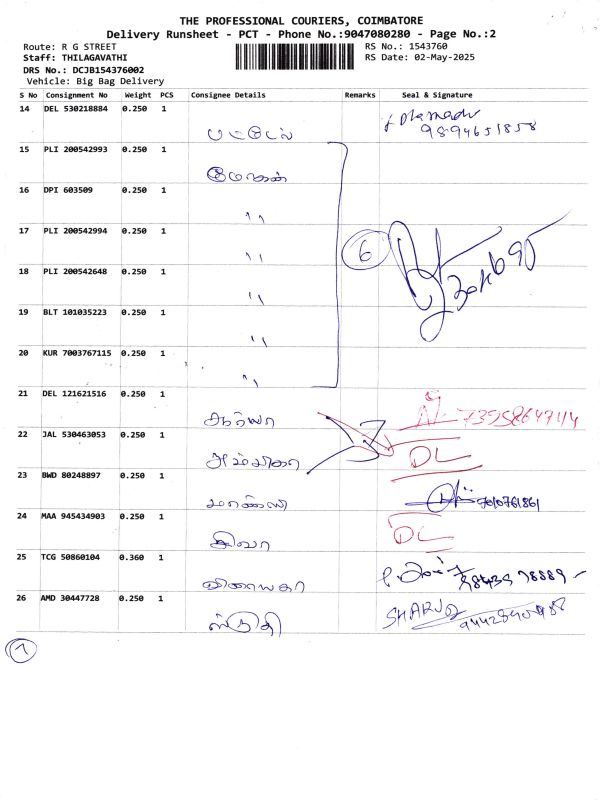 THE PROFESSIONAL COURIERS, COIMBATORE
Delivery Runsheet - PCT - Phone No.:9047080280 - Page No.:2
Route: R G STREET
RS No.: 1543760
Staff: THILAGAVATHI
RS Date: 02-May-2025
DRS No.: DCJB154376002
Vehicle: Big Bag Delivery
S No Consignment No Weight PCS Consignee Details Remarks Seal & Signature
14 DEL 530218884 0.250 1
பட்டேல் 9894651858
15 PLI 200542993 0.250 1
மோகன்
16 DPI 603509 0.250 1
"
17 PLI 200542994 0.250 1
" 6
18 PLI 200542648 0.250 1
"
19 BLT 101035223 0.250 1
"
20 KUR 7003767115 0.250 1
"
21 DEL 121621516 0.250 1
சூர்யா
22 JAL 530463053 0.250 1
அம்பிகை DL
23 BWD 80248897 0.250 1
7010761861
24 MAA 945434903 0.250 1
சிவா DL
25 TCG 50860104 0.360 1
விநாயகா
26 AMD 30447728 0.250 1
ஸ்ருதி